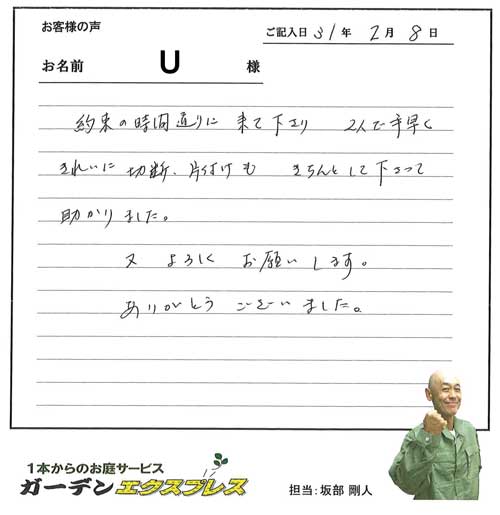 お客様の声
ご記入日 31年 2月 8日
お名前 U 様
約束の時間通りに 来て下さり 2人で手早く
きれいに 切断、片付けも きちんとして下さって
助かりました。
又 よろしく お願いします。
ありがとう ございました。
1本からのお庭サービス
ガーデンエクスプレス
担当:坂部 剛人